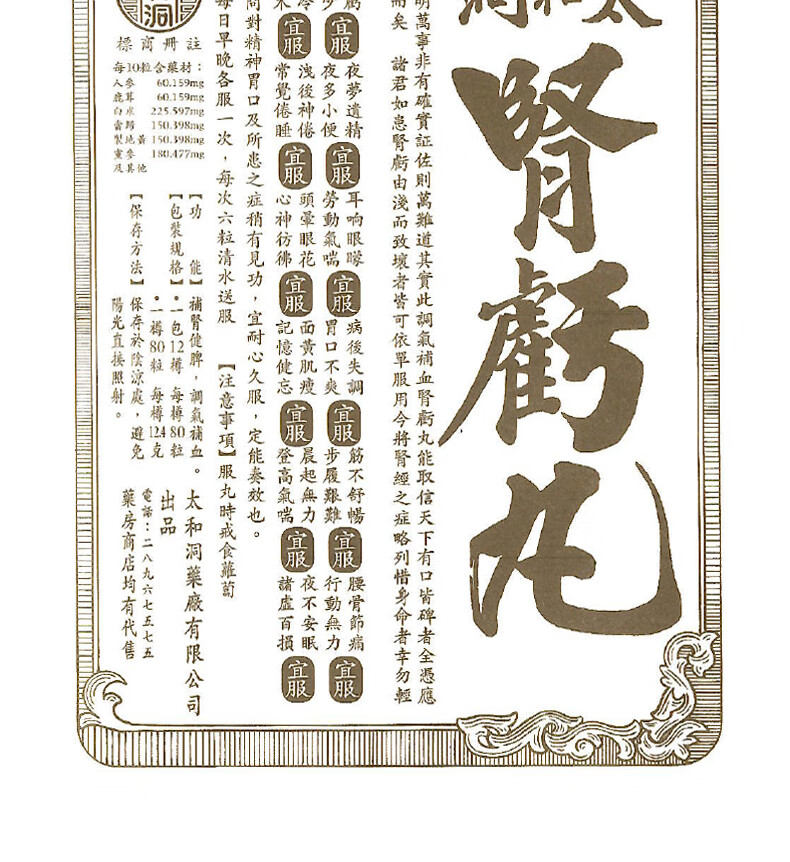 太和洞
腎虧丸
明萬事非有確實証佐則萬難道其實此調氣補血腎虧丸能取信天下有口皆碑者全憑應
而矣 諸君如患腎虧由淺而致壞者皆可依單服用今將腎經之症略列惜身命者幸勿輕
宜服
夜夢遺精
夜多小便
宜服
耳响眼矇
勞動氣喘
宜服
病後失調
胃口不爽
宜服
筋不舒暢
步履艱難
宜服
腰骨節痛
行動無力
宜服
宜服
洩後神倦
常覺倦睡
宜服
頭暈眼花
心神彷彿
宜服
面黃肌瘦
記憶健忘
宜服
晨起無力
登高氣喘
宜服
夜不安眠
諸虛百損
宜服
對精神胃口及所患之症稍有見功，宜耐心久服，定能奏效也。
每日早晚各服一次，每次六粒清水送服 【注意事項】服丸時戒食蘿蔔
洞
註冊商標
每10粒含藥材：
人參 60.159mg
鹿茸 60.159mg
白朮 225.597mg
當歸 150.398mg
製地黃 150.398mg
黨參 180.477mg
及其他
【功能】補腎健脾，調氣補血。
【包裝規格】•一包12樽 每樽80粒
•一樽80粒 每樽12.4克
【保存方法】保存於陰涼處，避免
陽光直接照射。
太和洞藥廠有限公司
出品
電話：二八九六七五七五
藥房商店均有代售